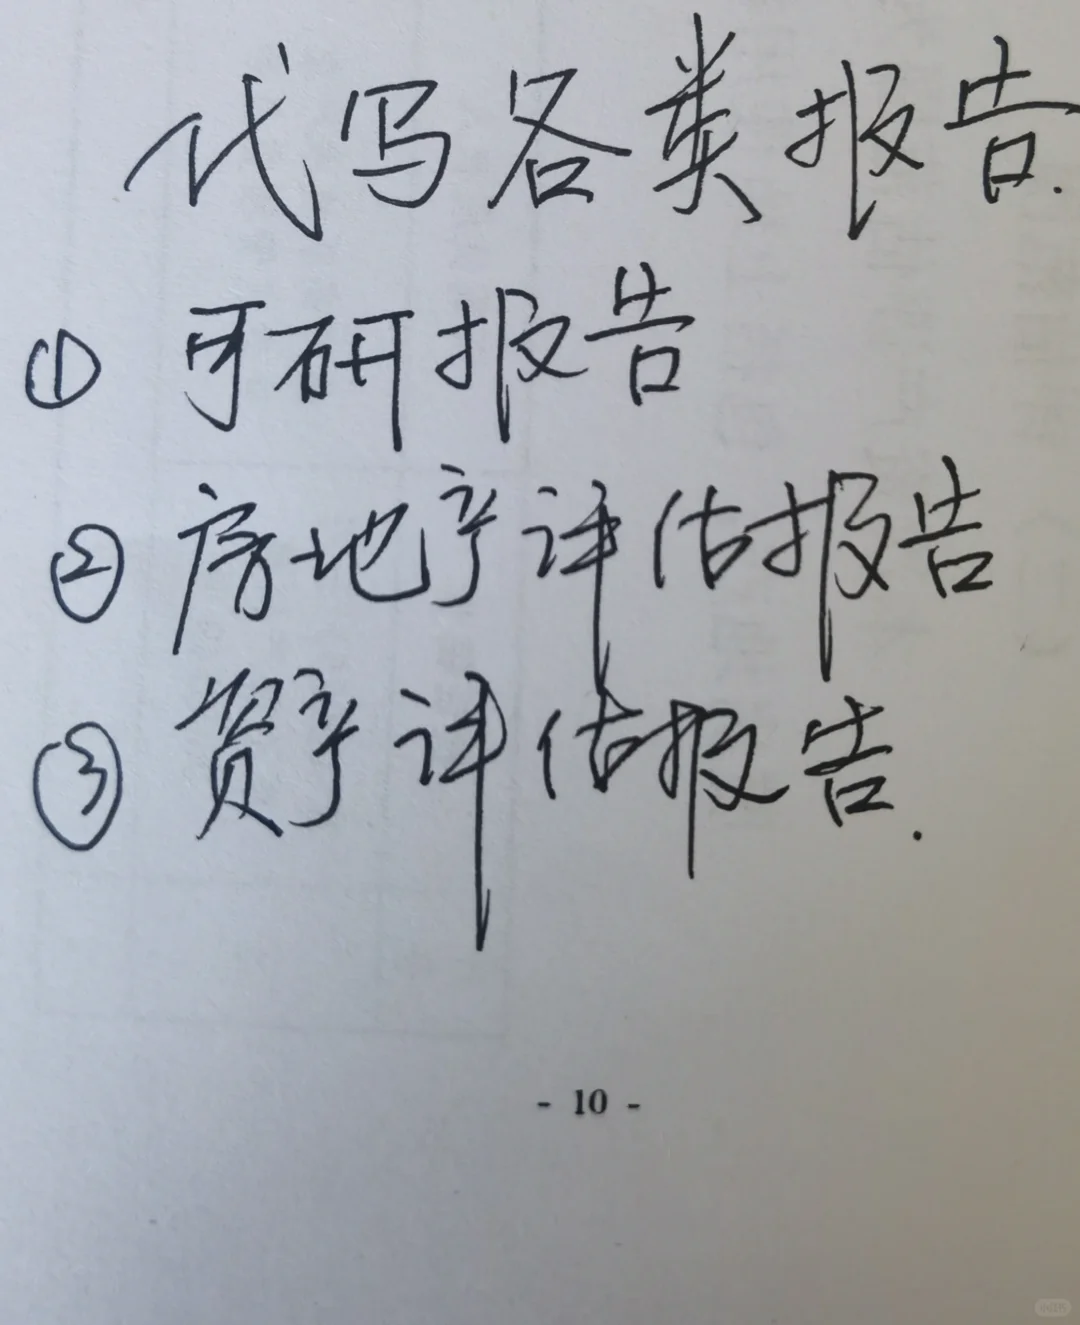 代写各类报告.
① 可研报告
② 房地产评估报告
③ 资产评估报告.
- 10 -